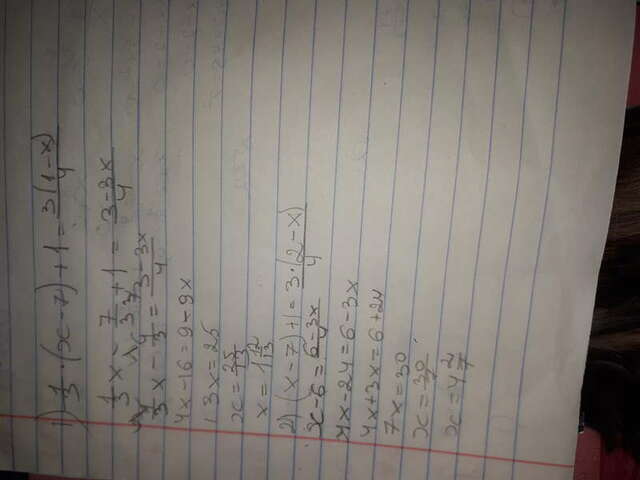 1) 1/3 · (x - 7) + 1 = 3(1-x)/4
1/3 x - 7/3 + 1 = 3-3x/4
1/3 x - 4/3 = 3-3x/4
4x - 16 = 9 - 9x
13x = 25
x = 25/13
x = 1 12/13
2) (x - 7) + 1 = 3·(2-x)/4
x - 6 = 6-3x/4
4x - 24 = 6 - 3x
4x + 3x = 6 + 24
7x = 30
x = 30/7
x = 4 2/7